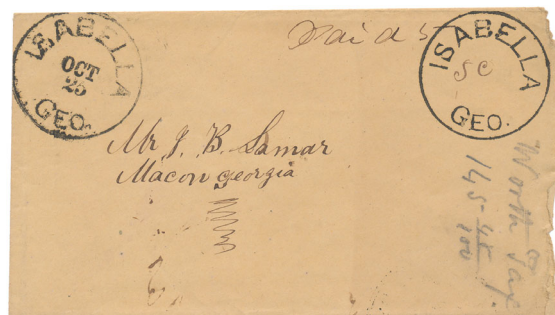 ISABELLA
OCT
25
GEO.
Paid 5
ISABELLA
5C
GEO.
Mr J. B. Lamar
Macon georgia
Worth Tax
145 45/100